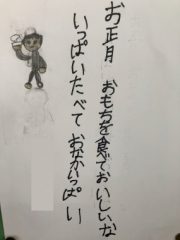 お正月 おもちを食べておいしいな
いっぱいたべておなかいっぱい